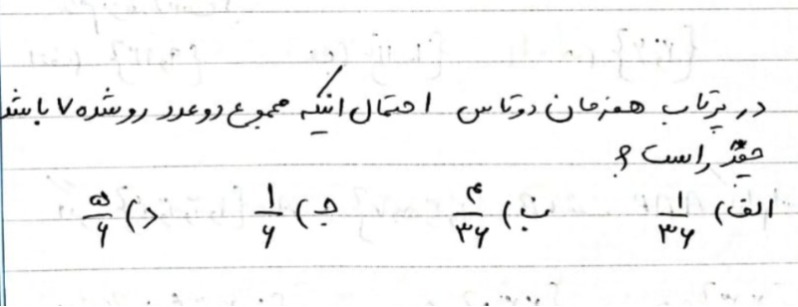 در پرتاب همزمان دوتاس احتمال اینکه مجموع دوعدد روشده ۷ باشد
چقدر است؟
الف) ۱/۳۶ ب) ۴/۳۶ ج) ۱/۶ د) ۵/۶